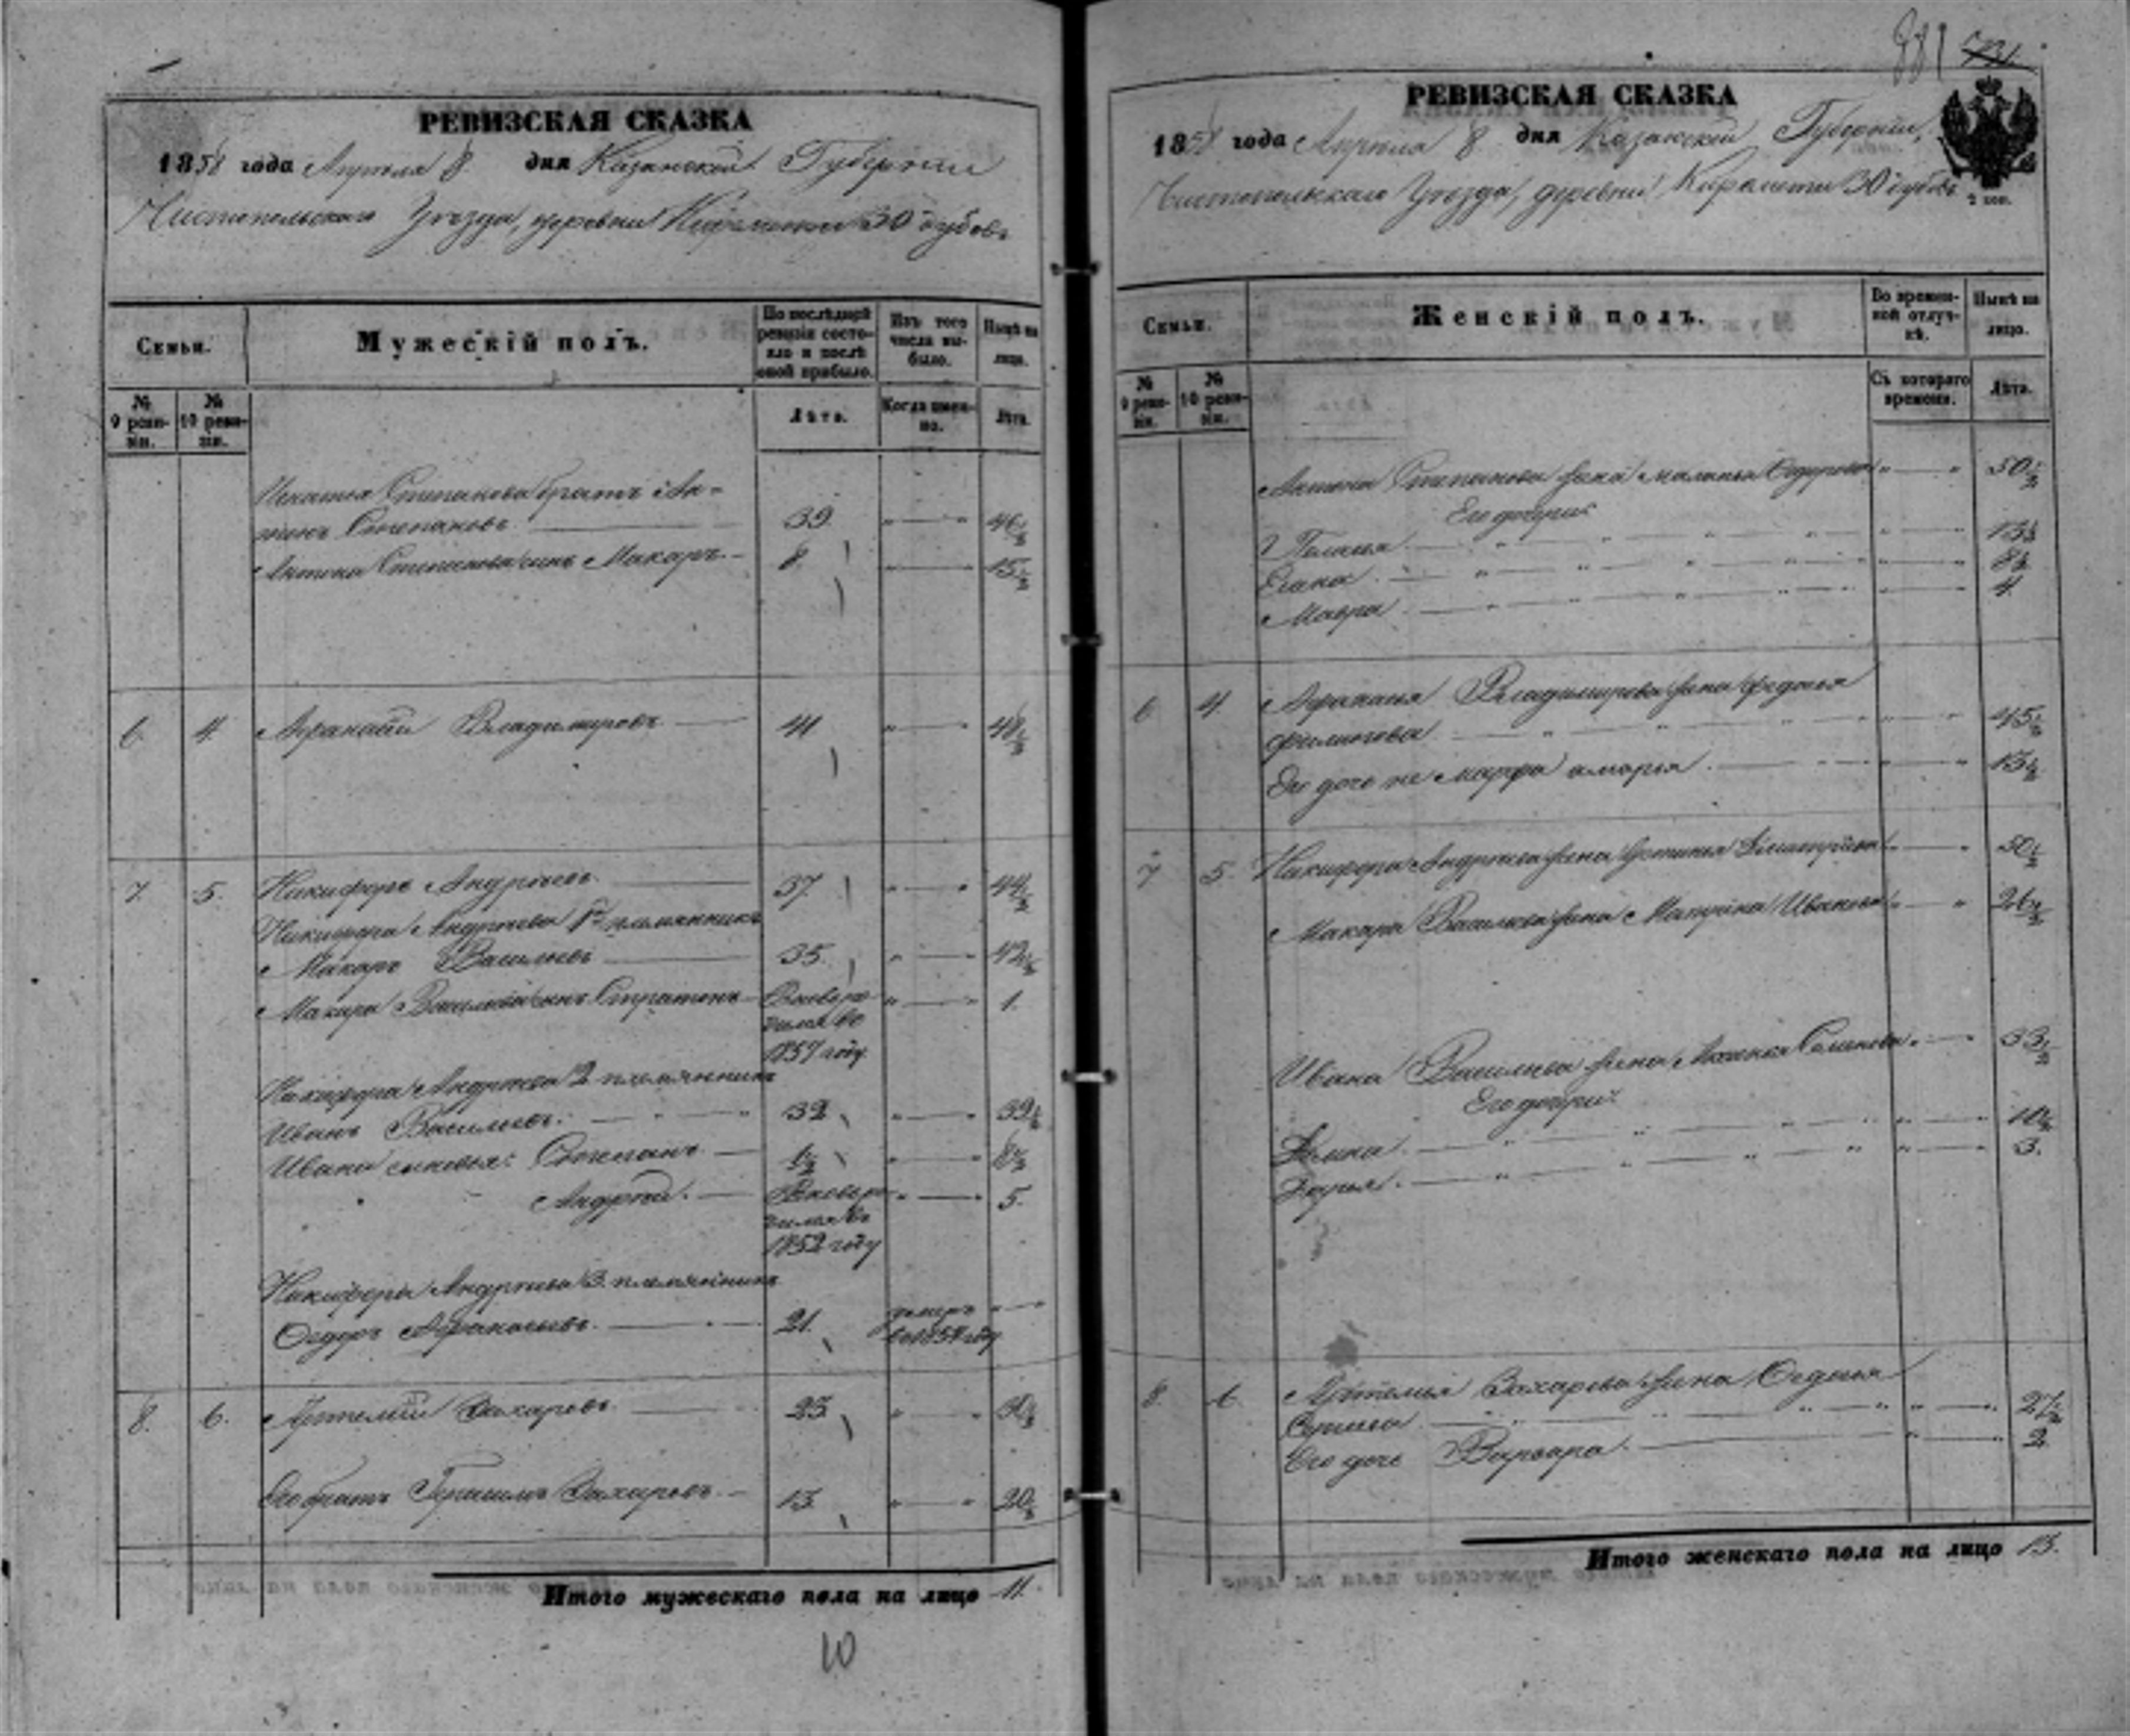 РЕВИЗСКАЯ СКАЗКА
1858 года Апреля 8 дня Казанской Губернии
Чистопольскаго Уезда, деревни Киремети 30 дубовъ
Семьи.
Мужескій полъ.
По послѣдней ревизіи состояло и послѣ оной прибыло.
Изъ того числа выбыло.
Нынѣ на лицо.
№ 9 ревизіи.
№ 10 ревизіи.
Лѣта.
Когда именно.
Лѣта.
Степанова братъ Ан-
тонъ Степановъ 39 46½
Антона Степанова сынъ Макаръ 8 15½
6. 4. Афанасій Владимировъ 41 48½
7. 5. Никифоръ Андреевъ 37 44½
Никифора Андреева 1й племянникъ
Макаръ Васильевъ 35 42½
Макара Васильева сынъ Стратонъ Вновь ро- 1.
дился во
1857 году
Никифора Андреева 2 племянникъ
Иванъ Васильевъ 32 39½
Ивана сыновья: Степанъ 1½ 8½
Андрей Вновь ро- 5.
дился въ
1852 году
Никифора Андреева 3 племянникъ
Федоръ Афанасьевъ 21. умеръ
8. 6. Артемій Захаровъ 23 30½
Его братъ Герасимъ Захаровъ 13 20½
Итого мужескаго пола на лицо 11.
10
881
РЕВИЗСКАЯ СКАЗКА
1858 года Апреля 8 дня Казанской Губерніи,
Чистопольскаго Уезда, деревни Киремети 30 дубовъ
2 коп.
Семьи.
Женскій полъ.
Во временной отлучкѣ.
Нынѣ на лицо.
№ 9 ревизіи.
№ 10 ревизіи.
Съ котораго времени.
Лѣта.
Антона Степанова жена Маланья 50½
Его дочери:
13½
8½
Мавра 4
6 4. Афанасья Владимирова жена Федосья
Филипова 45½
Его дочь не Марфа а Марья 15½
7 5. Никифора Андреева жена Устинья 50½
Макара Васильева жена Матрёна Иванова 26½
Ивана Васильева жена 33½
Его дочери:
10½
Дарья 3.
8. 6. Артемья Захарова жена
27½
Его дочь Варвара 2
Итого женскаго пола на лицо 13.